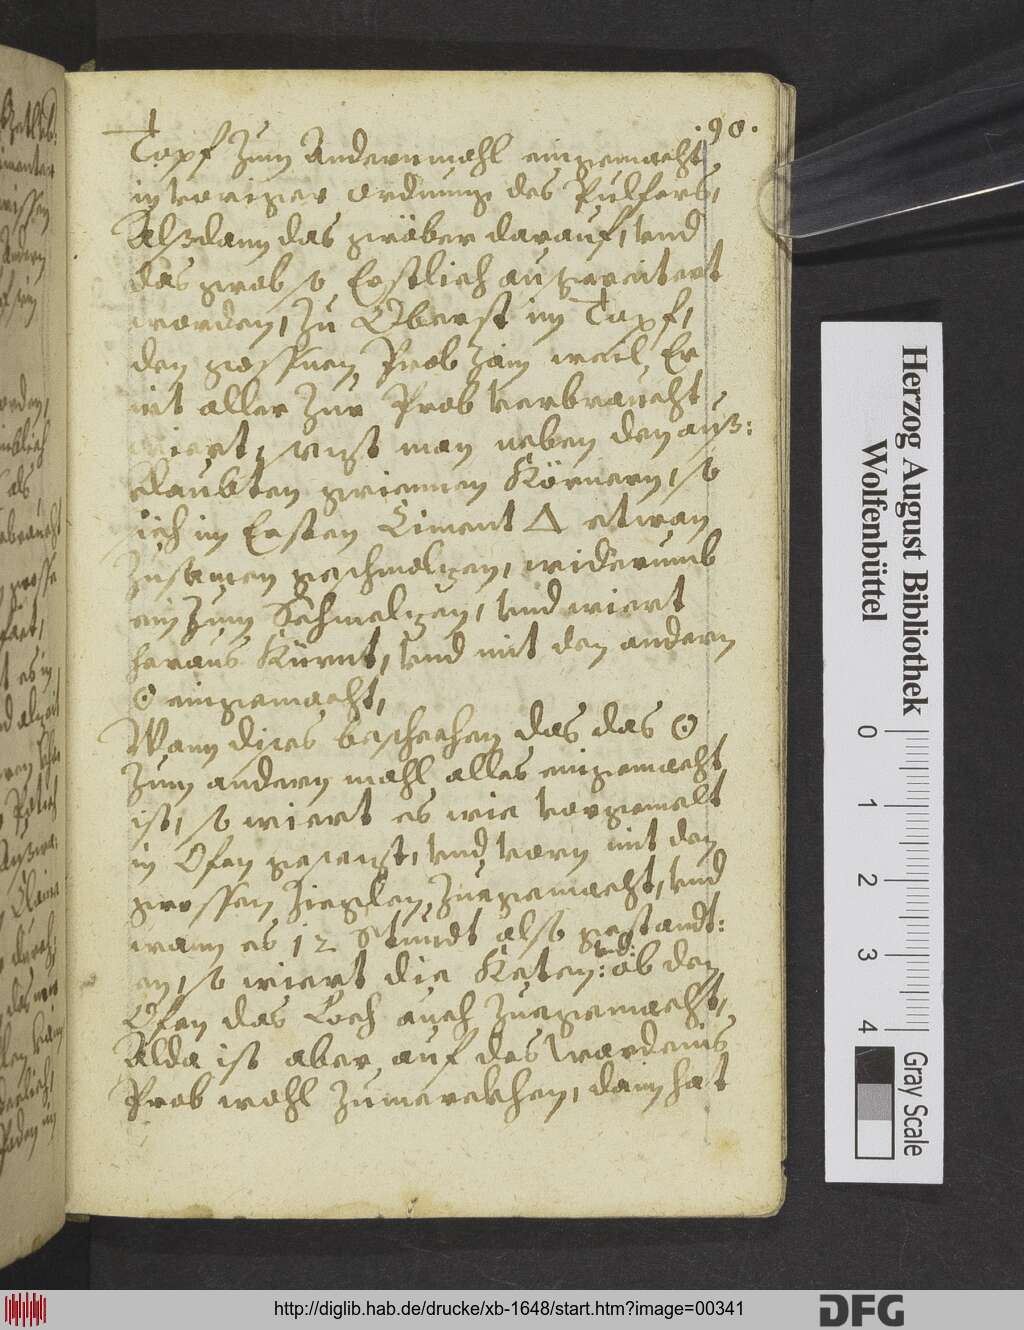 .90.
Topf zum Andern mahl eingemacht,
in voriger ordnung des Pulfers,
Alßdann das gröber darauf, vnd
das grob so Erstlich
worden, Zu Oberst im Topf,
den gossnen Prob Zain weil Er
nit aller Zur Prob verbraucht
wiert, sezt man neben den auß:
klaubten Körnern, so
sich im Ersten Ciment △ etwan
Zusamen geschmelzen, widerumb
ein Zum Schmelzen, vnd wiert
heraus Kürnt, vnd mit den andern
☉ eingemacht,
Wann dises beschechen das das ☉
Zum andern mahl alles eingemacht
ist, so wiert es wie vorgemelt
in Ofen gesezt, vnd vorn mit den
grossen Zieglen Zuegemacht, vnd
wann es 12 Stundt also gestandt:
en, so wiert die Keten: vnd ob den
Ofen das Loch auch Zuegemacht,
Alda ist aber auf des Wardeins
Prob wohl Zumerckhen, dann hat
Herzog August Bibliothek
Wolfenbüttel
0 1 2 3 4
Gray Scale
http://diglib.hab.de/drucke/xb-1648/start.htm?image=00341
DFG